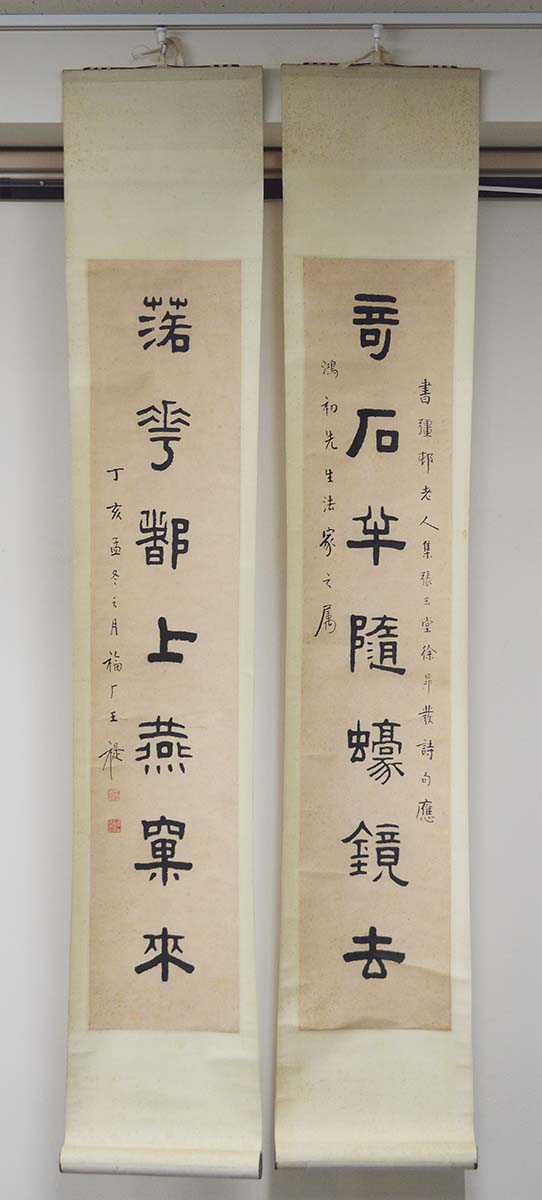 書彊邨老人集張玉堂徐昂發詩句應
奇石半隨蠔鏡去
鴻初先生法家之属
落華都上燕窠來
丁亥孟冬之月福厂王禔